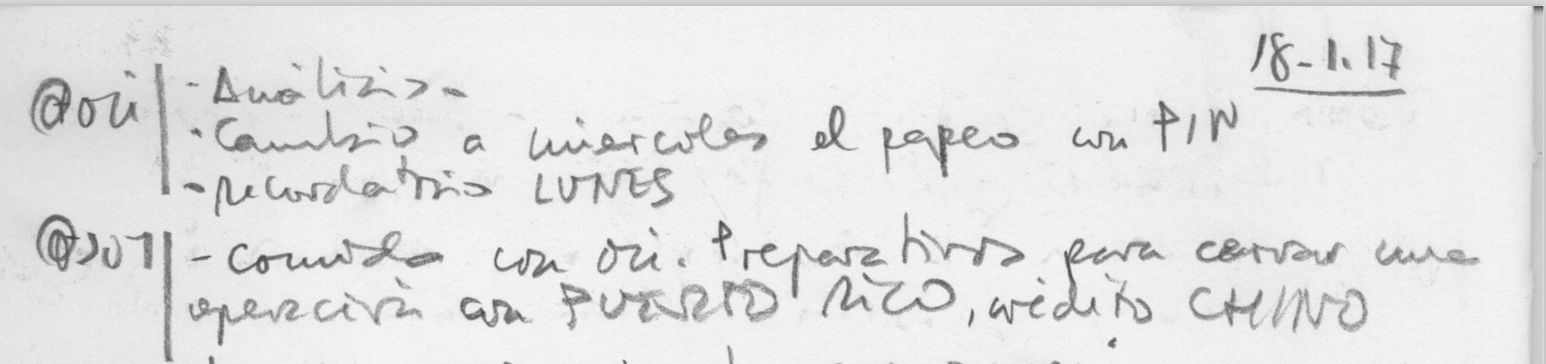 18-1.17
@ori - Análisis -
- Cambio a miercoles el papeo con PIN
- recordatorio LUNES
- comida con ori. Preparativos para cerrar una
operación con PUERTO RICO, crédito CHINO